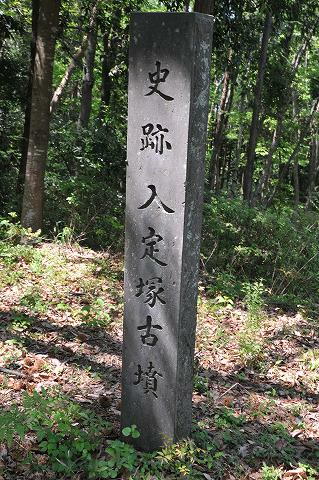 史跡入定塚古墳